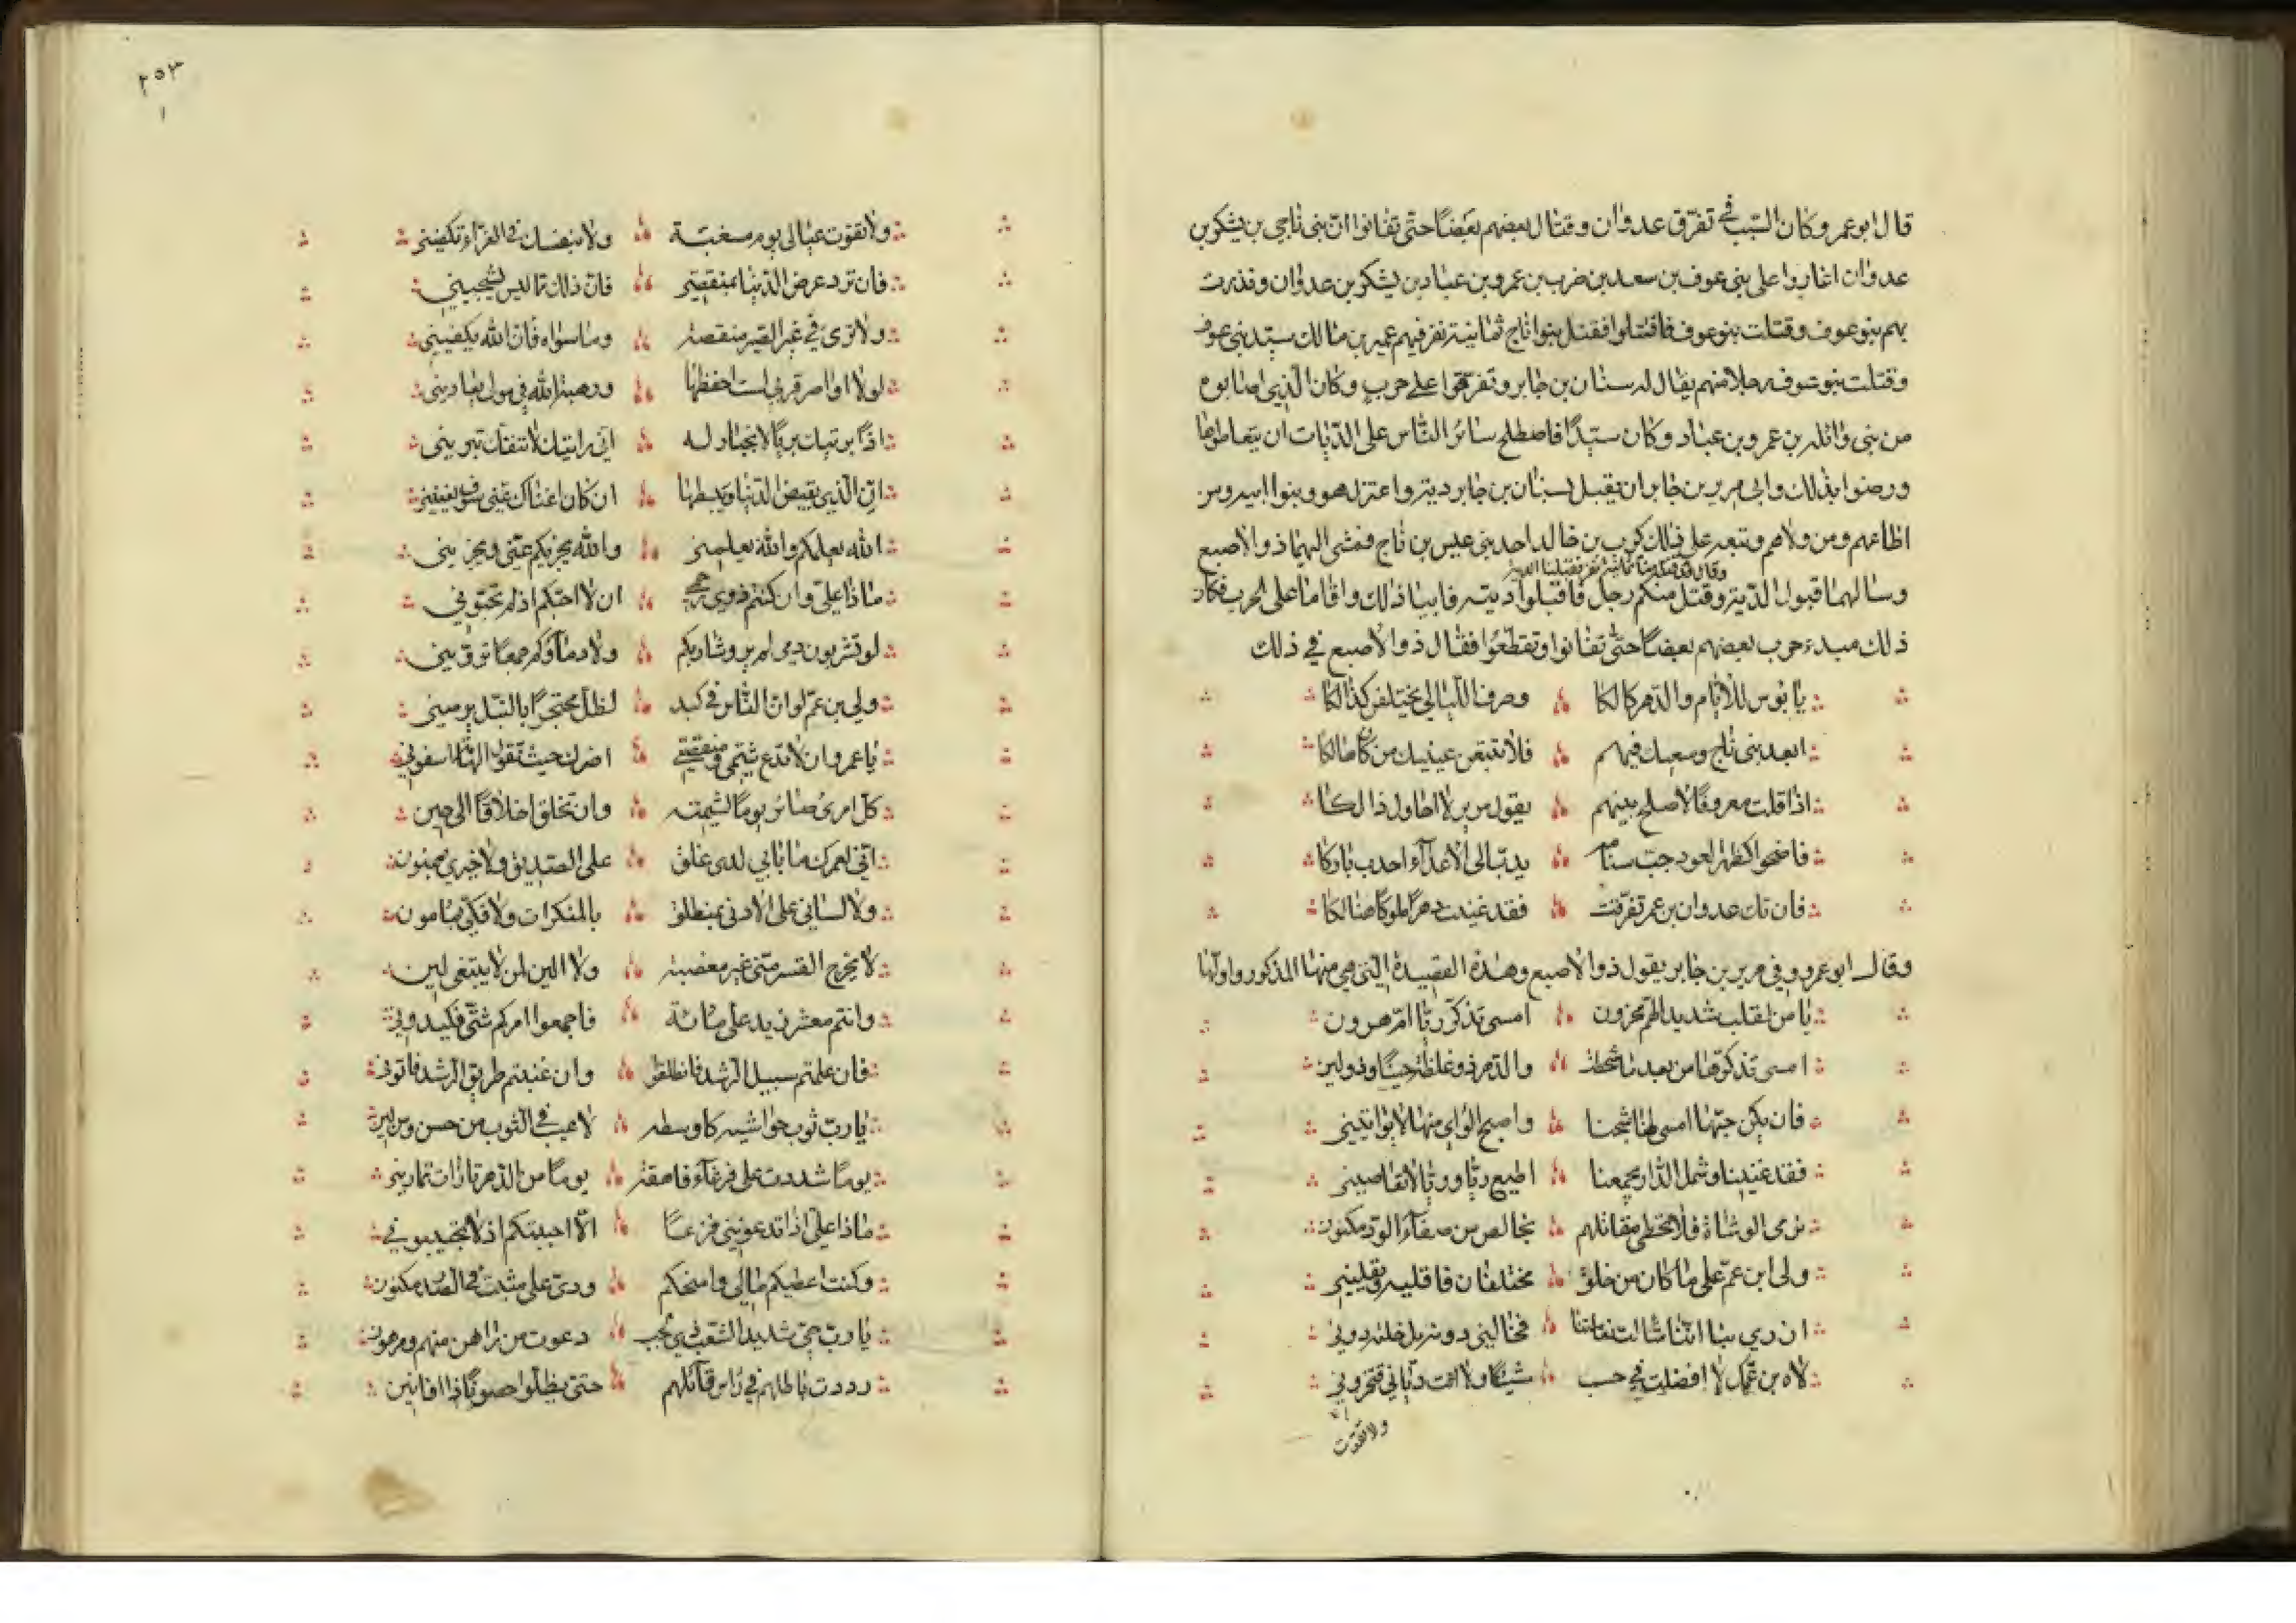 قال ابو عمرو وكان السبب في تفرق عدوان وقتال بعضهم بعضا حتى تفانوا ان بنى ناجى بن يشكر بن
عدوان اغاروا على بنى عوف بن سعد بن ضرب بن عمرو بن عباد بن يشكر بن عدوان ونذرت
بهم بنو عوف وقتلت بنو عوف فاقتتلوا فقتل بنوا ناج ثمانية نفر فيهم عمير بن مالك سيد بنى عوف
وقتلت بنو عوف رجلا منهم يقال له سنان بن جابر وتفرقوا على حرب وكان الذي اصابوه
من بنى واثله بن عمرو بن عباد وكان سيدا فاصطلح سائر الناس على الديات ان يتعاطوها
ورضوا بذلك وابى مرير بن جابر ان يقبل بسنان بن جابر دية واعتزل هو وبنوا ابيه ومن
اطاعهم ومن والاهم وتبعه على ذلك كرب بن خالد احد بنى عبس بن ناج فمشى اليهما ذو الاصبع
وسالهما قبول الدية وقتل منكم رجل فاقبلوا ديته فابيا ذلك واقاما على الحرب فكان
ذلك مبدء حرب بعضهم بعضا حتى تفانوا وتقطعوا فقال ذو الاصبع في ذلك
يا بوس للايام والدهر هالكا وصرف الليالي يختلفن كذالكا
ابعد بنى ناج وسعيك فيهم فلا تتبعن عينيك من كان هالكا
اذا قلت معروفا لاصلح بينهم يقول مرير لا احاول ذالكا
فاضحوا كظهر العود جب سنامه يدب الى الاعداء احدب باركا
فان تك عدوان بن عمرو تفرقت فقد غنيت دهرا ملوكا هنالكا
وقال ابو عمرو وفي مرير بن جابر يقول ذو الاصبع وهذه القصيدة التي هي منها المذكور واولها
يا من لقلب شديد الهم محزون امسى تذكر ريا ام هرون
امسى تذكرها من بعد ما شحطت والدهر ذو غلظة حينا وذو لين
فان يكن حبها امسى لنا شجنا واصبح الواي منها لا يواتينى
فقد غنينا وشمل الدار يجمعنا اطيع ريا وريا لا تعاصينى
نرمى الوشاة فلا نخطى مقاتلهم بخالص من صفاء الود مكنون
ولى ابن عم على ما كان من خلق مختلفان فاقليه ويقلينى
ازري بنا اننا شالت نعامتنا فخالنى دونه بل خلته دونى
لاه بن عمك لا افضلت في حسب شيئا ولا انت ديانى فتخزونى
ولا تقوت
٢٥٣
ولا تقوت عيالى يوم مسغبة ولا بنفسك في العزاء تكفينى
فان ترد عرض الدنيا بمنقصتى فان ذلك مما ليس يشجينى
ولا ترى في غير القبر منقصة وما سواه فان الله يكفينى
لولا اواصر قربى لست احفظها ورهبة الله في مولى يعادينى
اذا بريتك بريا لا انجبار له انى رايتك لا تنفك تبرينى
ان الذي يقبض الدنيا ويبسطها ان كان اغناك عنى سوف يغنينى
الله يعلمكم والله يعلمنى والله يجزيكم عنى ويجزينى
ماذا على وان كنتم ذوى رحمى ان لا احبكم اذ لم تحبونى
لو تشربون دمى لم يرو شاربكم ولا دماؤكم جمعا تروينى
ولى بن عم لو ان الناس في كبد لظل محتجزا بالنبل يرمينى
يا عمرو ان لا تدع شتمى ومنقصتى اضربك حيث تقول الهامة اسقونى
كل امرئ صائر يوما لشيمته وان تخلق اخلاقا الى حين
انى لعمرك ما بابى لدى غلق على الصديق ولا خيري بممنون
ولا لسانى على الادنى بمنطلق بالمنكرات ولا فتكى بمامون
لا يخرج القسر منى غير مغضبة ولا الين لمن لا يبتغى لين
وانتم معشر زيد على مائة فاجمعوا امركم شتى فكيدونى
فان علمتم سبيل الرشد فانطلقوا وان غبيتم طريق الرشد فاتونى
يا رب ثوب حواشيه كاوسطه لا عيب في الثوب من حسن ومن لين
يوما شددت على فرغاء فاهقة يوما من الدهر تارات تمارينى
ماذا على اذا تدعوننى فزعا الا اجيبكم اذ لا تجيبونى
وكنت اعطيكم مالى وامنحكم ودى على مثبت في الصدر مكنون
يا رب حى شديد الشغب ذي لجب دعوت من راهن منهم ومرهون
رددت باطلهم في راس قائلهم حتى يظلوا خصوما ذا افانين